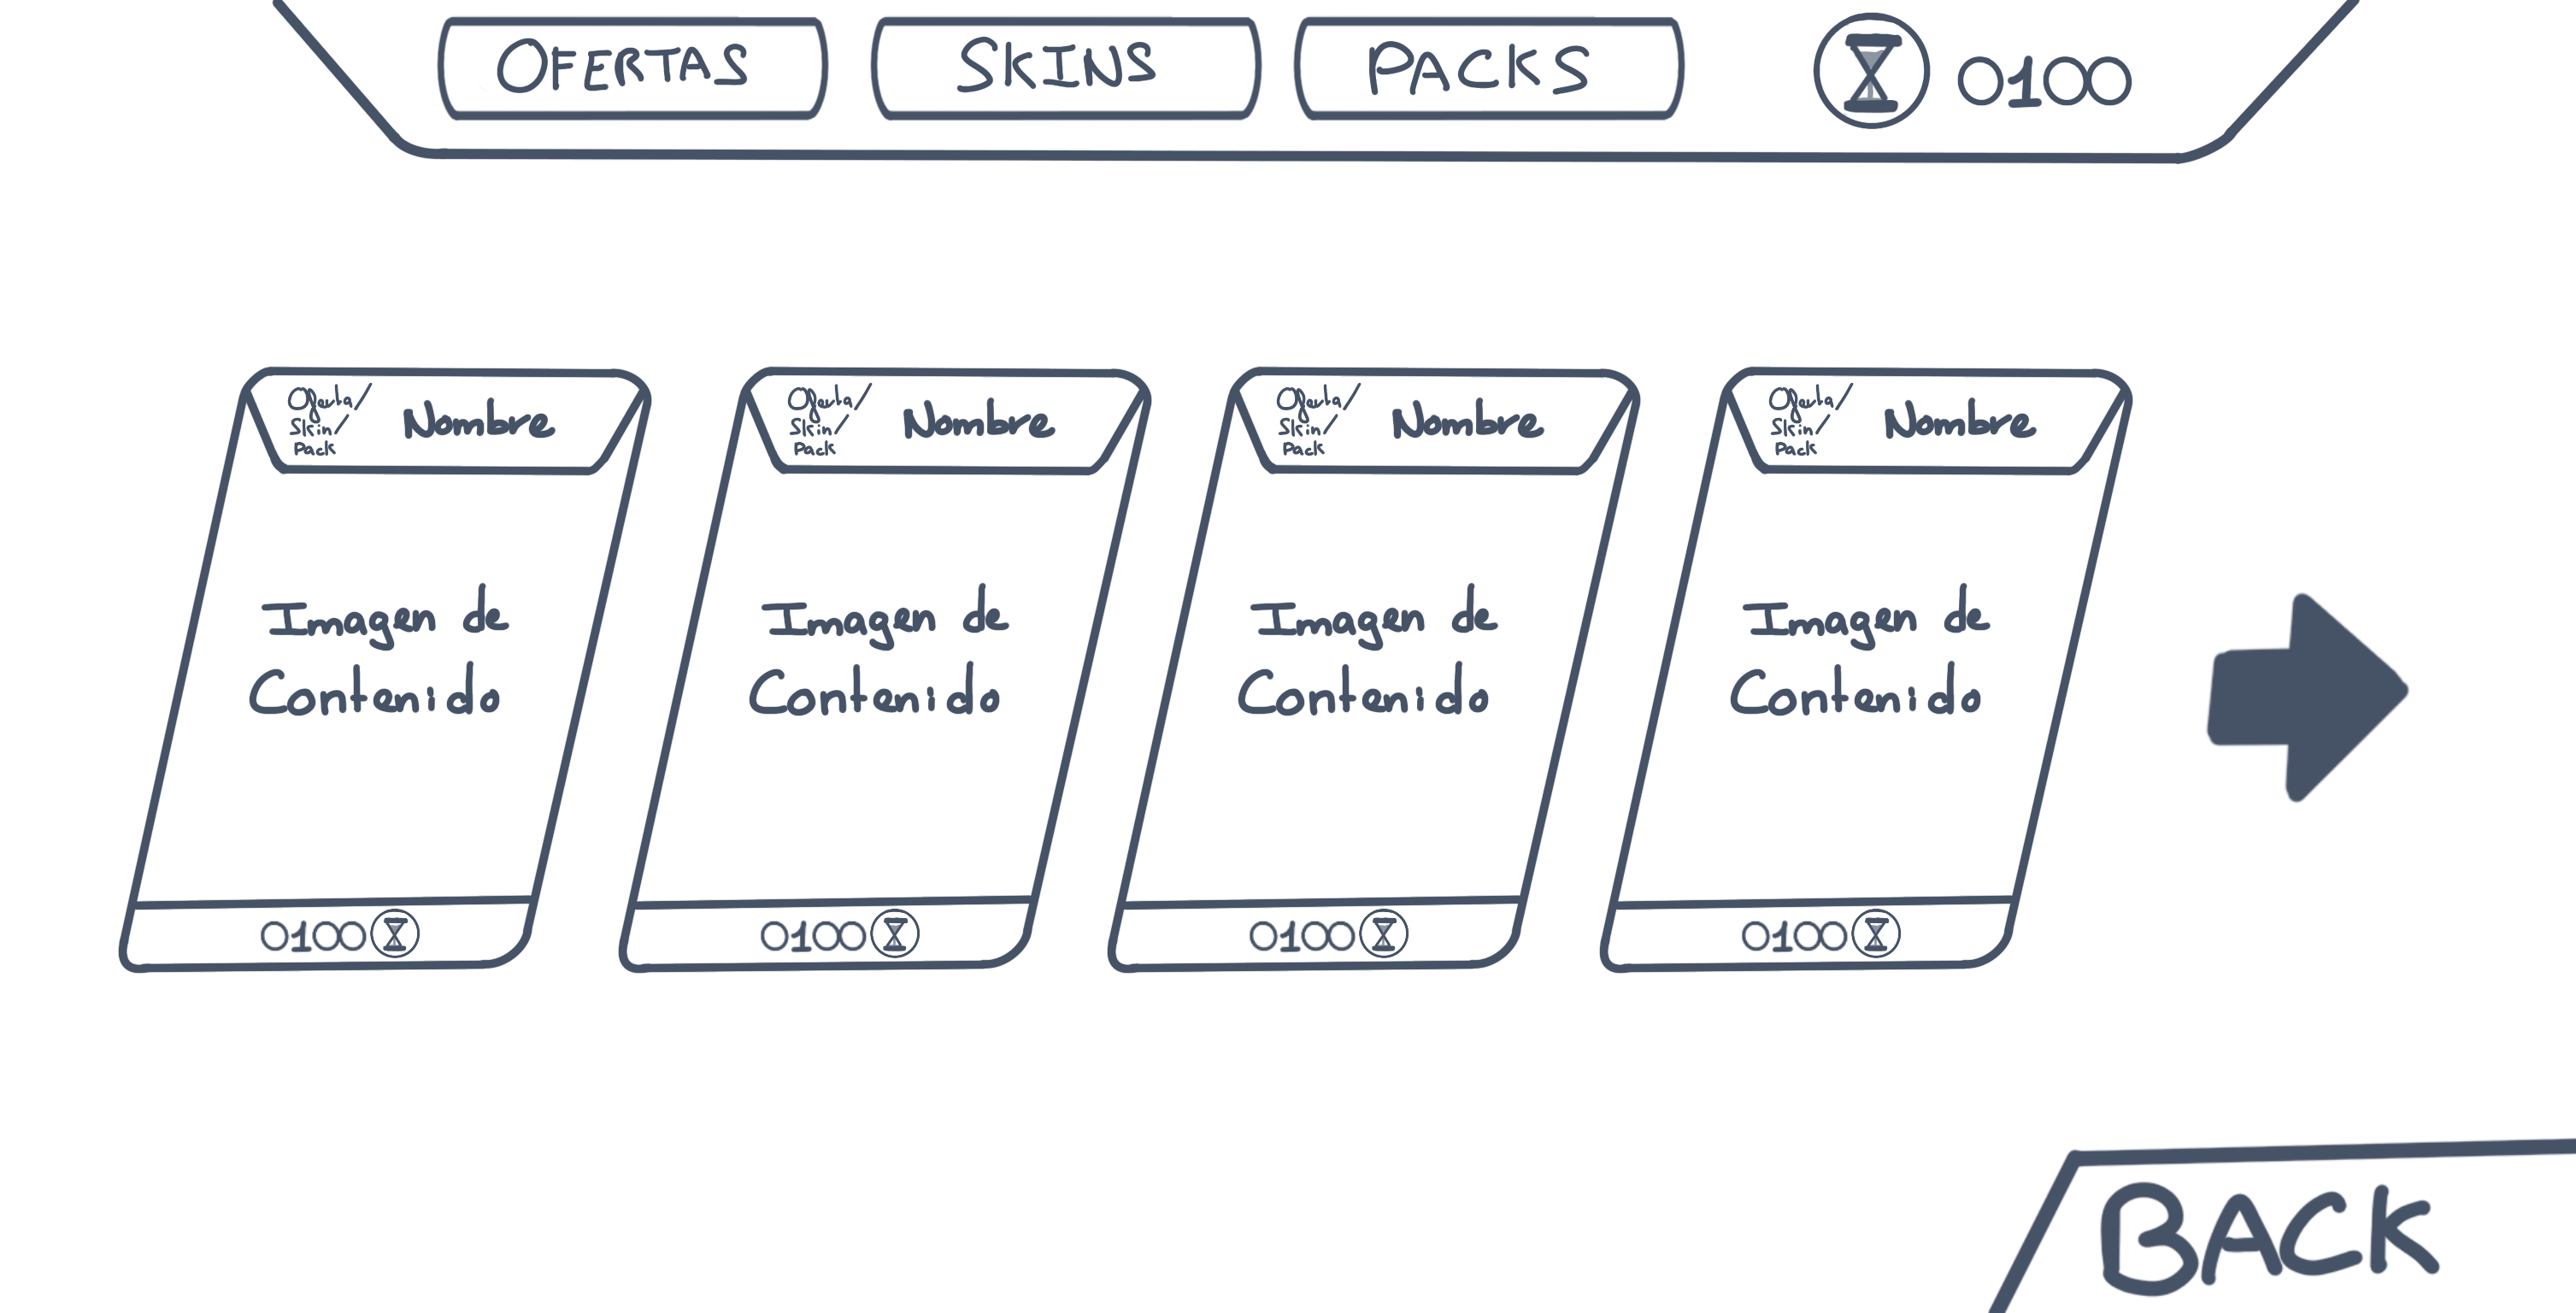 OFERTAS
SKINS
PACKS
0100
Oferta/
Skin/
Pack
Nombre
Imagen de
Contenido
0100
Oferta/
Skin/
Pack
Nombre
Imagen de
Contenido
0100
Oferta/
Skin/
Pack
Nombre
Imagen de
Contenido
0100
Oferta/
Skin/
Pack
Nombre
Imagen de
Contenido
0100
BACK